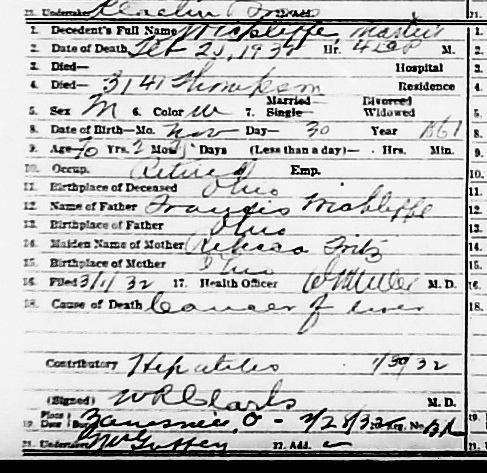 22. Undertaker 22. Add. 21.
1. Decedent's Full Name Wickliffe 1.
2. Date of Death Feb 25, 1932 Hr. M. 2.
3. Died— Hospital 3.
4. Died— 3141 Thompson Residence 4.
5. Sex M 6. Color W 7. Married— Single— Divorced Widowed 5.
8. Date of Birth—Mo. Nov Day— 30 Year 1861 8.
9. Age 70 Yrs. 2 Mos. Days (Less than a day)— Hrs. Min. 9.
10. Occup. Retired Emp. 10.
11. Birthplace of Deceased Ohio 11.
12. Name of Father Francis Wickliffe 12.
13. Birthplace of Father Ohio 13.
14. Maiden Name of Mother Rebecca Fritz 14.
15. Birthplace of Mother Ohio 15.
16. Filed 3/1/32 17. Health Officer M. D. 16.
18. Cause of Death Cancer of liver 18.
Contributory Hepatitis 1/30/32
(Signed) W R Clark M. D.
19. Place Date Zanesville, O - 2/28/32 20. Reg. No. 19.
21. Undertaker McGuffey 22. Add. 21.